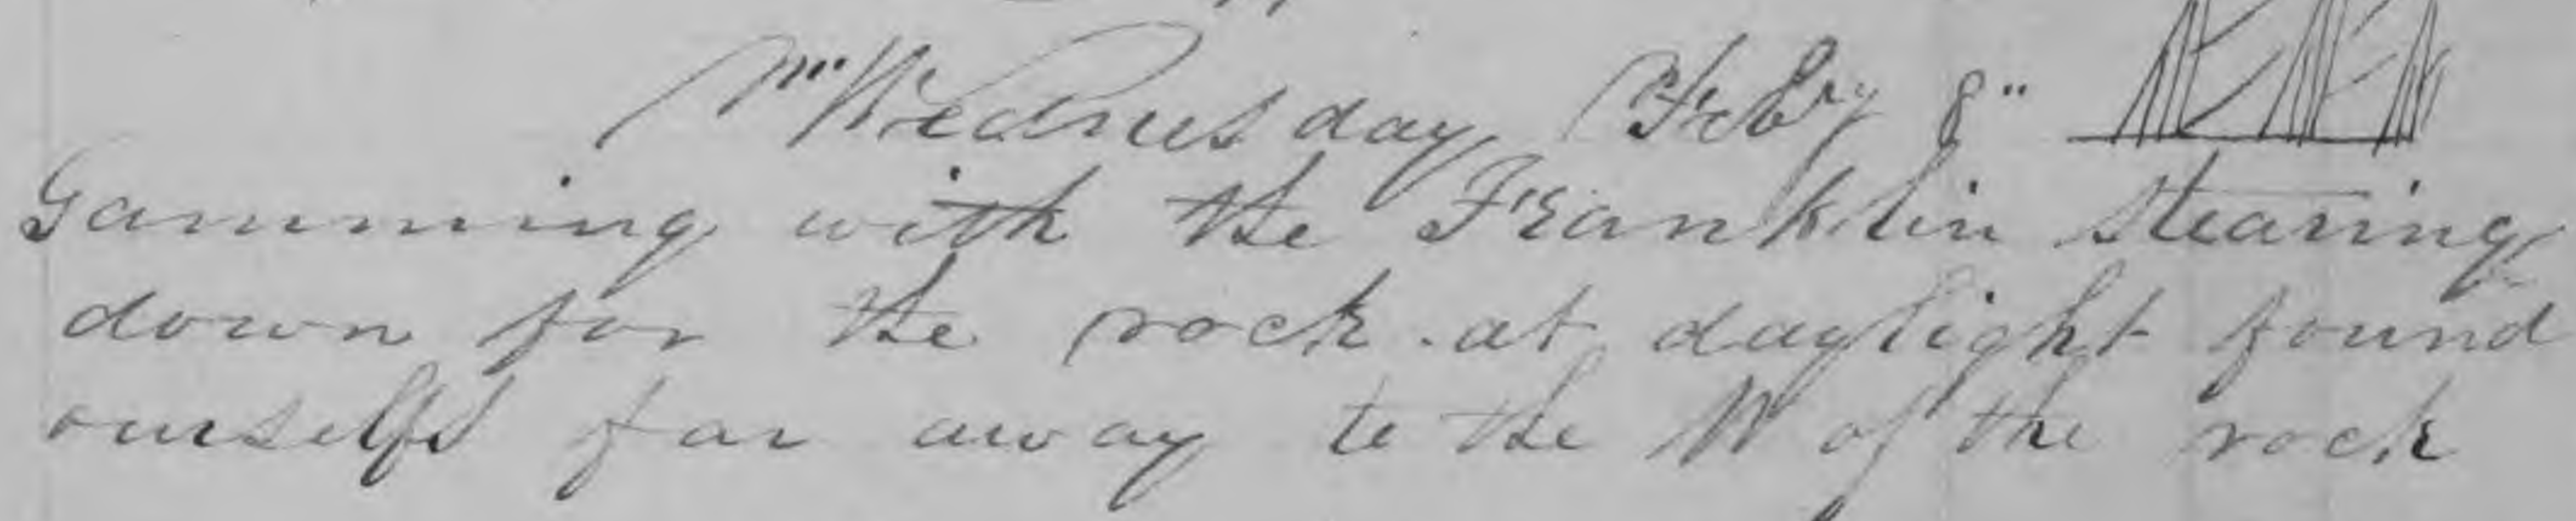 Wednesday Feby 8"
Gamming with the Franklin stearing
down for the rock. at daylight found
ourselfs far away to the W of the rock